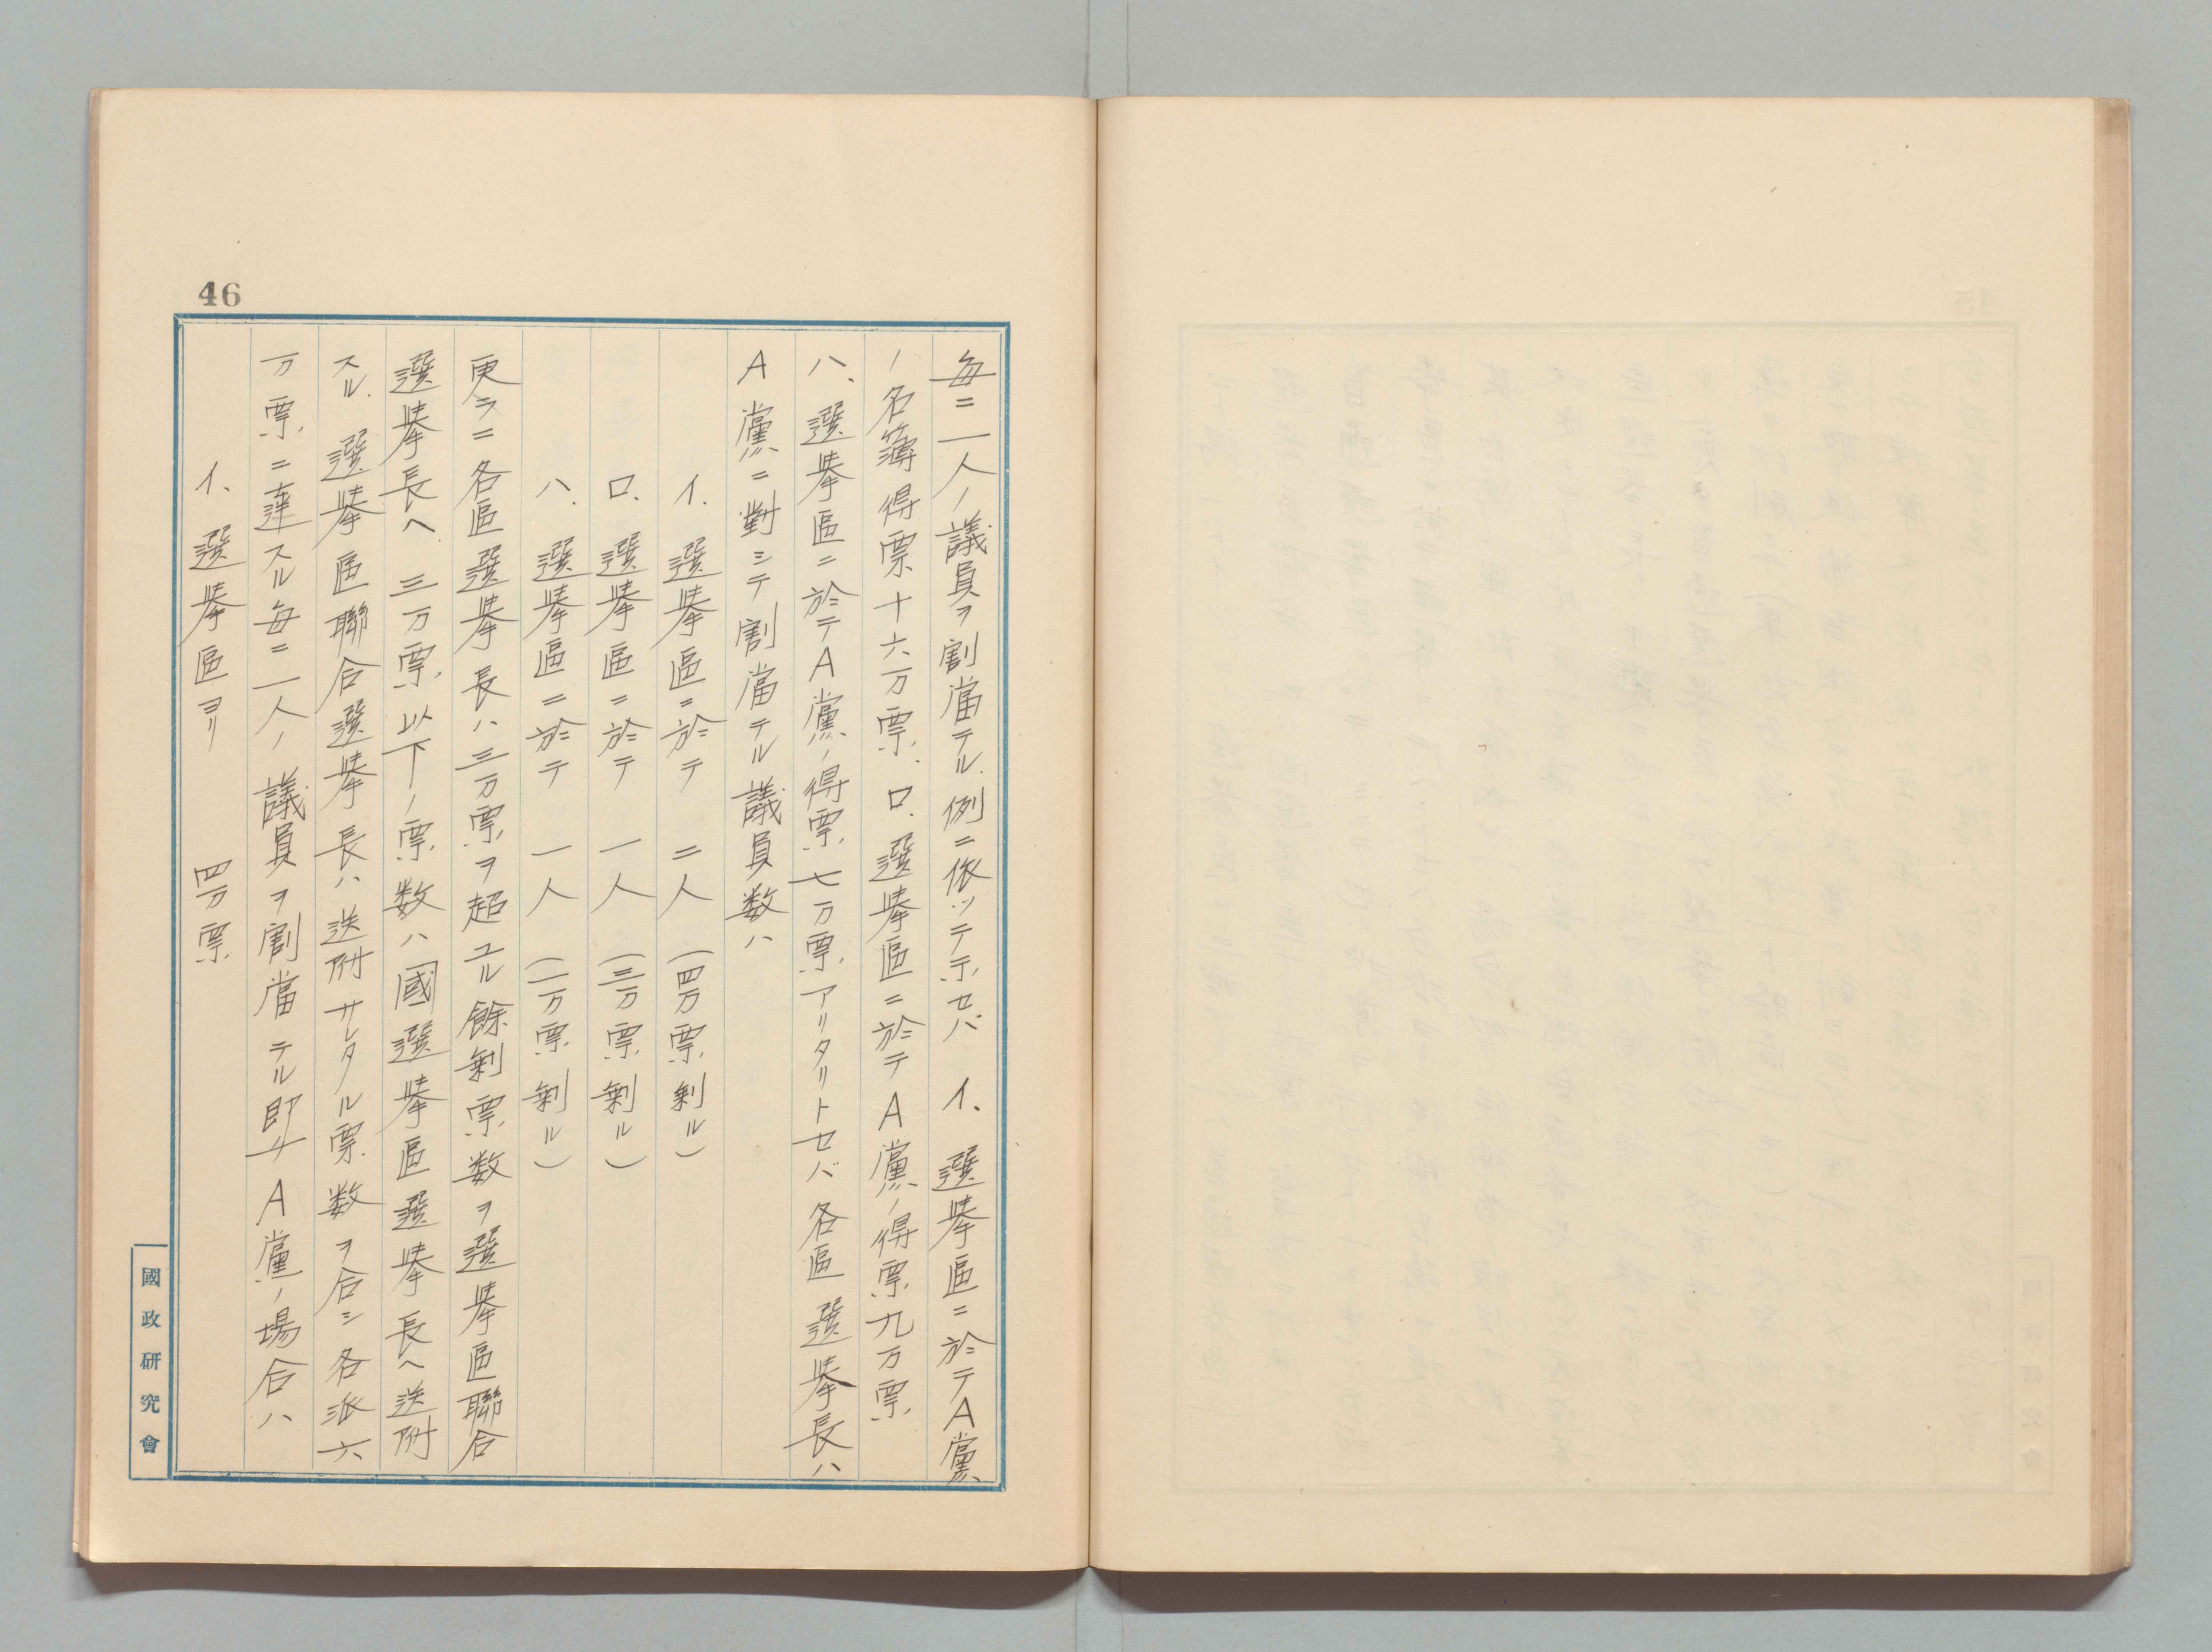 46
毎ニ一人ノ議員ヲ割當テル.例ニ依ッテ示セバ イ、選擧區ニ於テA黨
ノ名簿得票十六万票.ロ.選擧區ニ於テA黨ノ得票九万票
ハ、選擧區ニ於テA黨ノ得票七万票アリタリトセバ各區選擧長ハ
A黨ニ對シテ割當テル議員数ハ
イ.選擧區ニ於テ 二人 (四万票剰ル)
ロ.選擧區ニ於テ 一人 (三万票剰ル)
ハ.選擧區ニ於テ 一人 (一万票剰ル)
更ラニ各區選擧長ハ三万票ヲ超ユル餘剰票数ヲ選擧區聯合
選擧長ヘ三万票以下ノ票数ハ國選擧區選擧長ヘ送附
スル.選擧區聯合選擧長ハ送附サレタル票数ヲ合シ各派六
万票ニ達スル毎ニ一人ノ議員ヲ割當テル即チA黨ノ場合ハ
イ、選擧區ヨリ 四万票
國政研究會